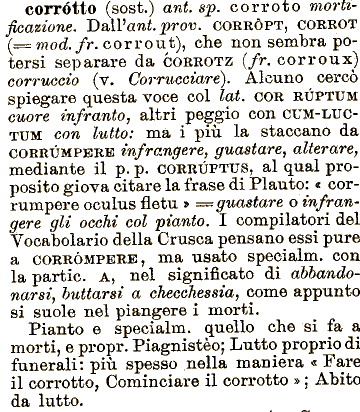 corrótto (sost.) ant. sp. corroto morti-
ficazione. Dall'ant. prov. CORRÔPT, CORROT
(= mod. fr. corrout), che non sembra po-
tersi separare da CORROTZ (fr. corroux)
corruccio (v. Corrucciare). Alcuno cercò
spiegare questa voce col lat. COR RÚPTUM
cuore infranto, altri peggio con CUM-LUC-
TUM con lutto: ma i più la staccano da
CORRÚMPERE infrangere, guastare, alterare,
mediante il p. p. CORRÚPTUS, al qual pro-
posito giova citare la frase di Plauto: « cor-
rumpere oculus fletu » = guastare o infran-
gere gli occhi col pianto. I compilatori del
Vocabolario della Crusca pensano essi pure
a CORRÓMPERE, ma usato specialm. con
la partic. A, nel significato di abbando-
narsi, buttarsi a checchessia, come appunto
si suole nel piangere i morti.
Pianto e specialm. quello che si fa a
morti, e propr. Piagnistèo; Lutto proprio di
funerali: più spesso nella maniera « Fare
il corrotto, Cominciare il corrotto »; Abito
da lutto.